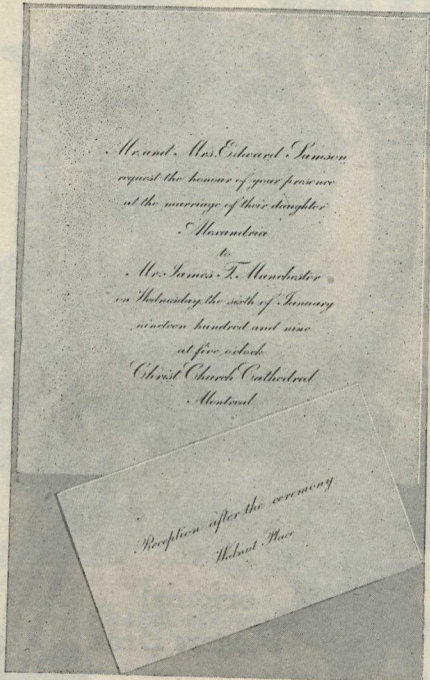 Mr. and Mrs. Edward Samson
request the honour of your presence
at the marriage of their daughter
Alexandria
to
Mr. James T. Manchester
on Wednesday, the sixth of January
nineteen hundred and nine
at five o'clock
Christ Church Cathedral
Montreal
Reception after the ceremony
Walnut Place